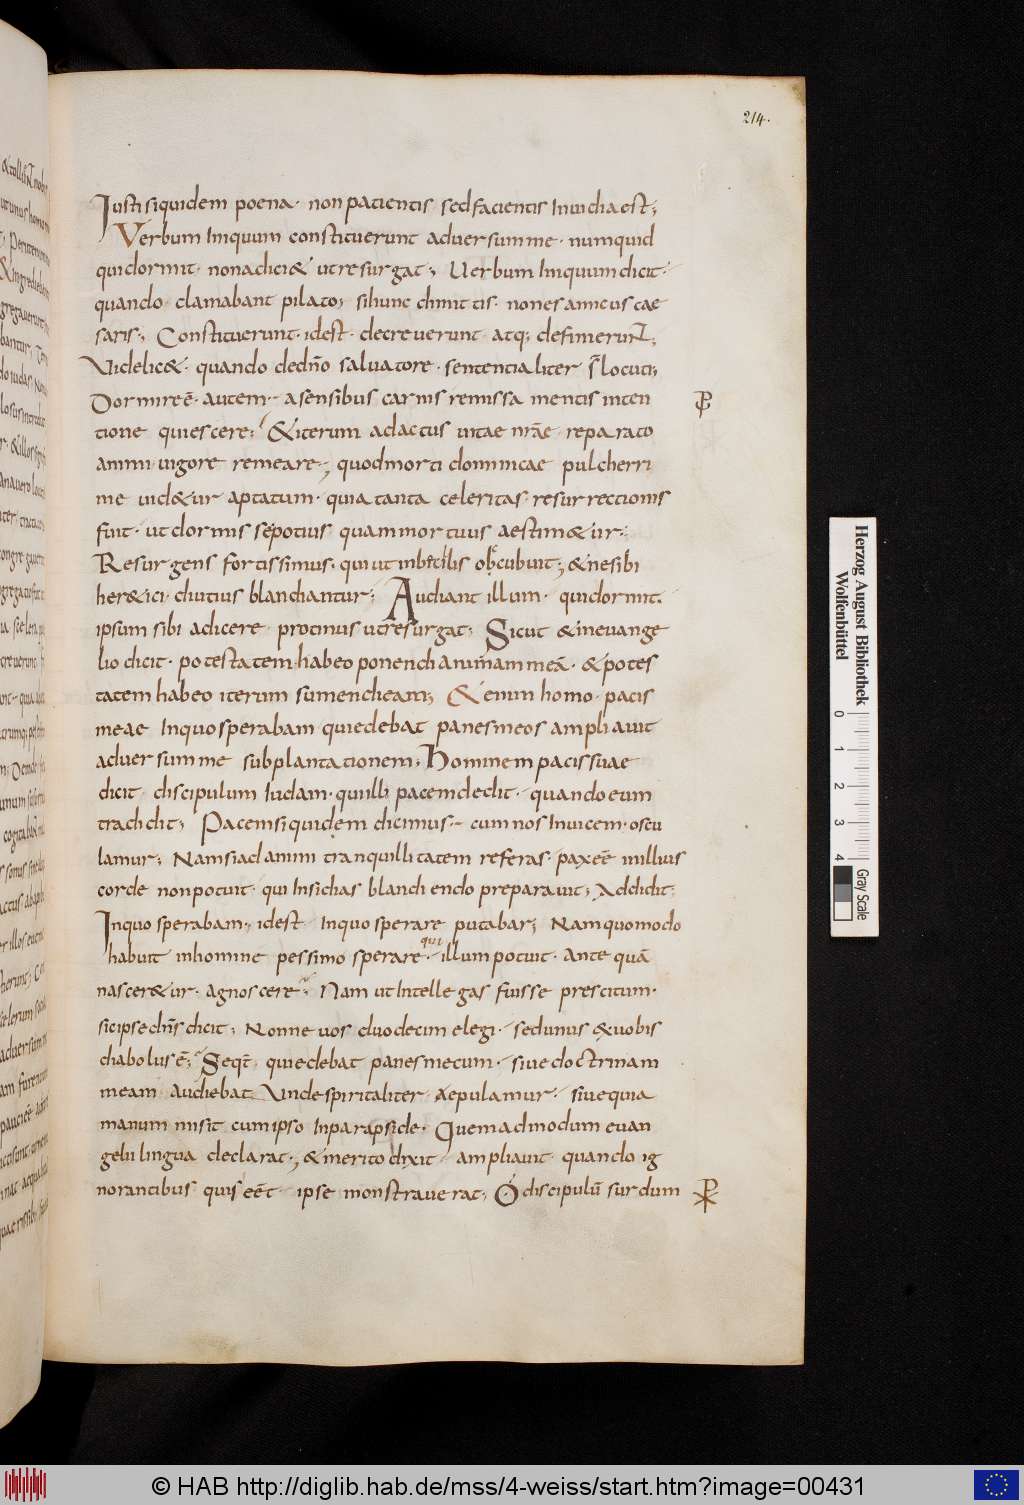 214.
Iusti siquidem poena · non patientis sed facientis Inuidia est;
Verbum Iniquum constituerunt aduersum me · numquid
qui dormit · non adici& ut resurgat; Uerbum Iniquum dicit ·
quando clamabant pilato; si hunc dimittis · non es amicus cae
saris; Constituerunt · id est · decreuerunt · atq; definierunt;
Videlic& · quando de dn̄o saluatore · sententialiter s̄t locuti;
Dormire ē · autem · a sensibus carnis remissa mentis inten
tione quiescere; & iterum ad actus uitae nr̄ae reparato
animi uigore remeare; quod morti dominicae pulcherri
me uid&ur aptatum · quia tanta celeritas resurrectionis
fuit · ut dormisse potius quam mortuus aestim&ur ·
Resurgens fortissimus · qui ut inbecillis obcubuit; & ne sibi
her&ici diutius blandiantur; Audiant illum · qui dormit ·
ipsum sibi adicere protinus ut resurgat; Sicut & in euange
lio dicit · potestatem habeo ponendi animam meā · & potes
tatem habeo iterum sumendi eam; &enim homo pacis
meae In quo sperabam qui edebat panes meos ampliauit
aduersum me subplantationem; Hominem pacis suae
dicit discipulum Iudam · qui illi pacem dedit · quando eum
tradidit; Pacem siquidem dicimus · cum nos Inuicem oscu
lamur; Nam si ad animi tranquillitatem referas · pax eē in illius
corde non potuit · qui Insidias blandiendo preparauit; Addidit;
In quo sperabam · id est In quo sperare putabar; Nam quomodo
habuit in homine pessimo sperare · qui illum potuit ante quā
nascer&ur · agnoscere · Nam ut Intellegas fuisse prescitum ·
sic ipse dn̄s dicit; Nonne uos duodecim elegi · sed unus ex uobis
diabolus ē; Seqt̄ qui edebat panes mecum · siue doctrinam
meam audiebat Unde spiritaliter aepulamur · siue quia
manum misit cum ipso In parapside · Quemadmodum euan
gelii lingua declarat; & merito dixit ampliauit · quando ig
norantibus quis eēt ipse monstrauerat; O discipulū surdum
Herzog August Bibliothek
Wolfenbüttel
0 1 2 3 4
Gray Scale
© HAB http://diglib.hab.de/mss/4-weiss/start.htm?image=00431